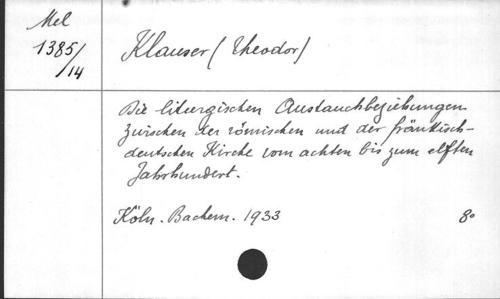 Mel
1385/
14
Klauser (Theodor)
Die liturgischen Austauschbeziehungen
zwischen der römischen und der fränkisch-
deutschen Kirche vom achten bis zum elften
Jahrhundert.
Köln. Bachem. 1933 8°